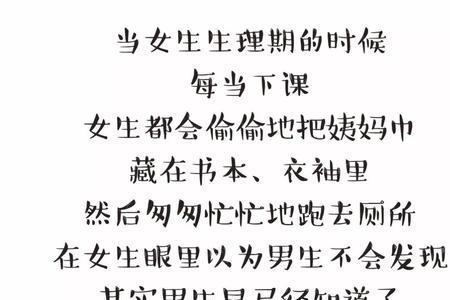 当女生生理期的时候
每当下课
女生都会偷偷地把姨妈巾
藏在书本、衣袖里
然后匆匆忙忙地跑去厕所
在女生眼里以为男生不会发现
其实男生早已经知道了